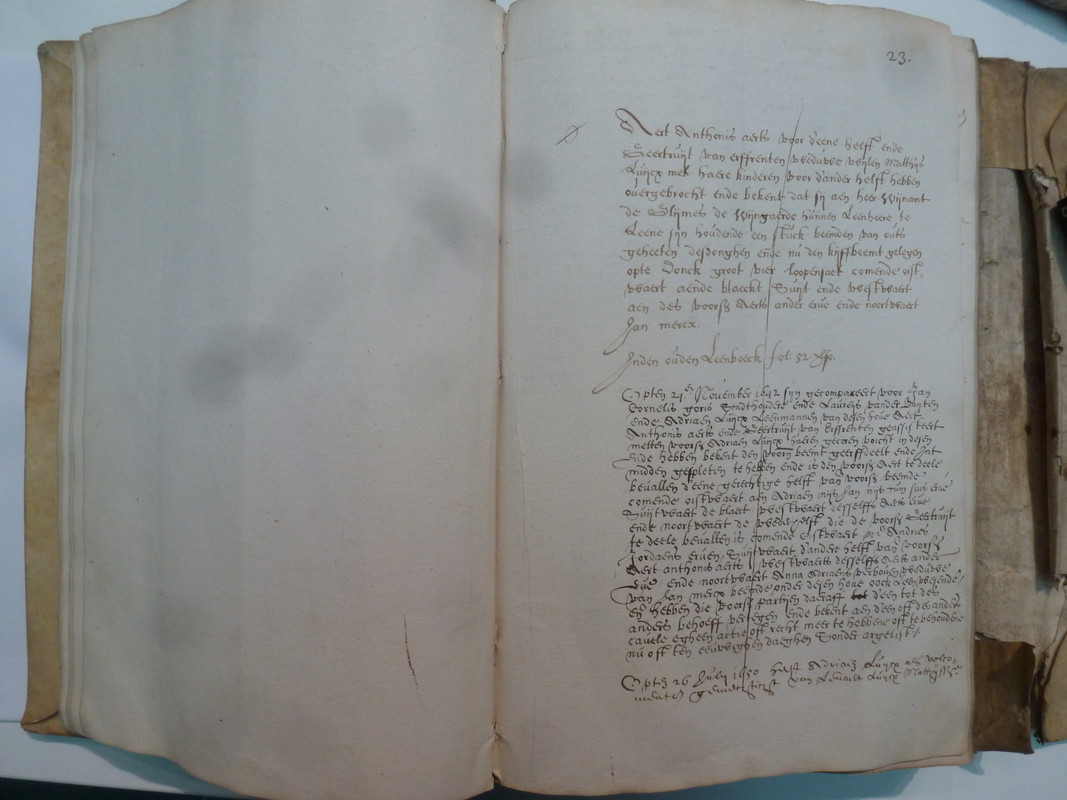 23.
Aert Anthonis aerts voor d'eene helft ende
Geertruijt van erffrenten weduwe wijlen Matthijs
Luijcx met haere kinderen voor d'ander helft hebben
overgebrocht ende bekent dat sij aen heer Wijnant
de Glijmes de Wijngaerde hunnen Leenheere te
Leene sijn houdende een stuck beemden van outs
geheeten desdonghen ende nu den kijffbeemt gelegen
opte Donck groot vier loopensaet comende oist,
waert aende blaeckt Suijt ende westwaert
aen des voors Aerts ander erve ende noortwaert
Jan mercx.
Inden ouden Leenboeck fol. 52
Opten 21 November 1642 sijn gecompareert voor Jan
Cornelis goris Stadthoudere ende Laureijs vander
ende Adriaen Luijcx Leenmannen van desen hove Aert
Anthonis aerts ende Geertruijt van Erffrenten geassisteert
metten voors Adriaen Luijcx haeren gecoren voicht in desen
Ende hebben bekent den voorn beemt geerffdeelt ende int
midden gespleten te hebben ende is den voors Aert te deele
bevallen d'eene gerechtige helft van voors beemde
comende oistwaert aen Adriaen
Suijtwaert de blaect westwaert desselffs Aerts erve
ende noortwaert de wederhelft die de voors Geertruijt
te deele bevallen is comende oistwaert Andries
Jordaens erven, Suijtwaert d'andere helft van voors
Aert anthonis aerts westwaerts desselffs Aerts ander
Erve ende noortwaert Anna Adriaens weduwe
van Jan mercx beemde onder desen hove oock Leen wesende
En hebben die voors partijen daeraff d'een tot des
anders behoeff vertegen ende bekent aen d'een off des anders
cavele egheen actie off recht meer te hebbene oft te behoudene
nu off ten eeuwighen daeghen Sonder argelist
Opten 26 Julij 1650 heeft Adriaen Luijcx als
van Lenaert Luijcx Matthijss